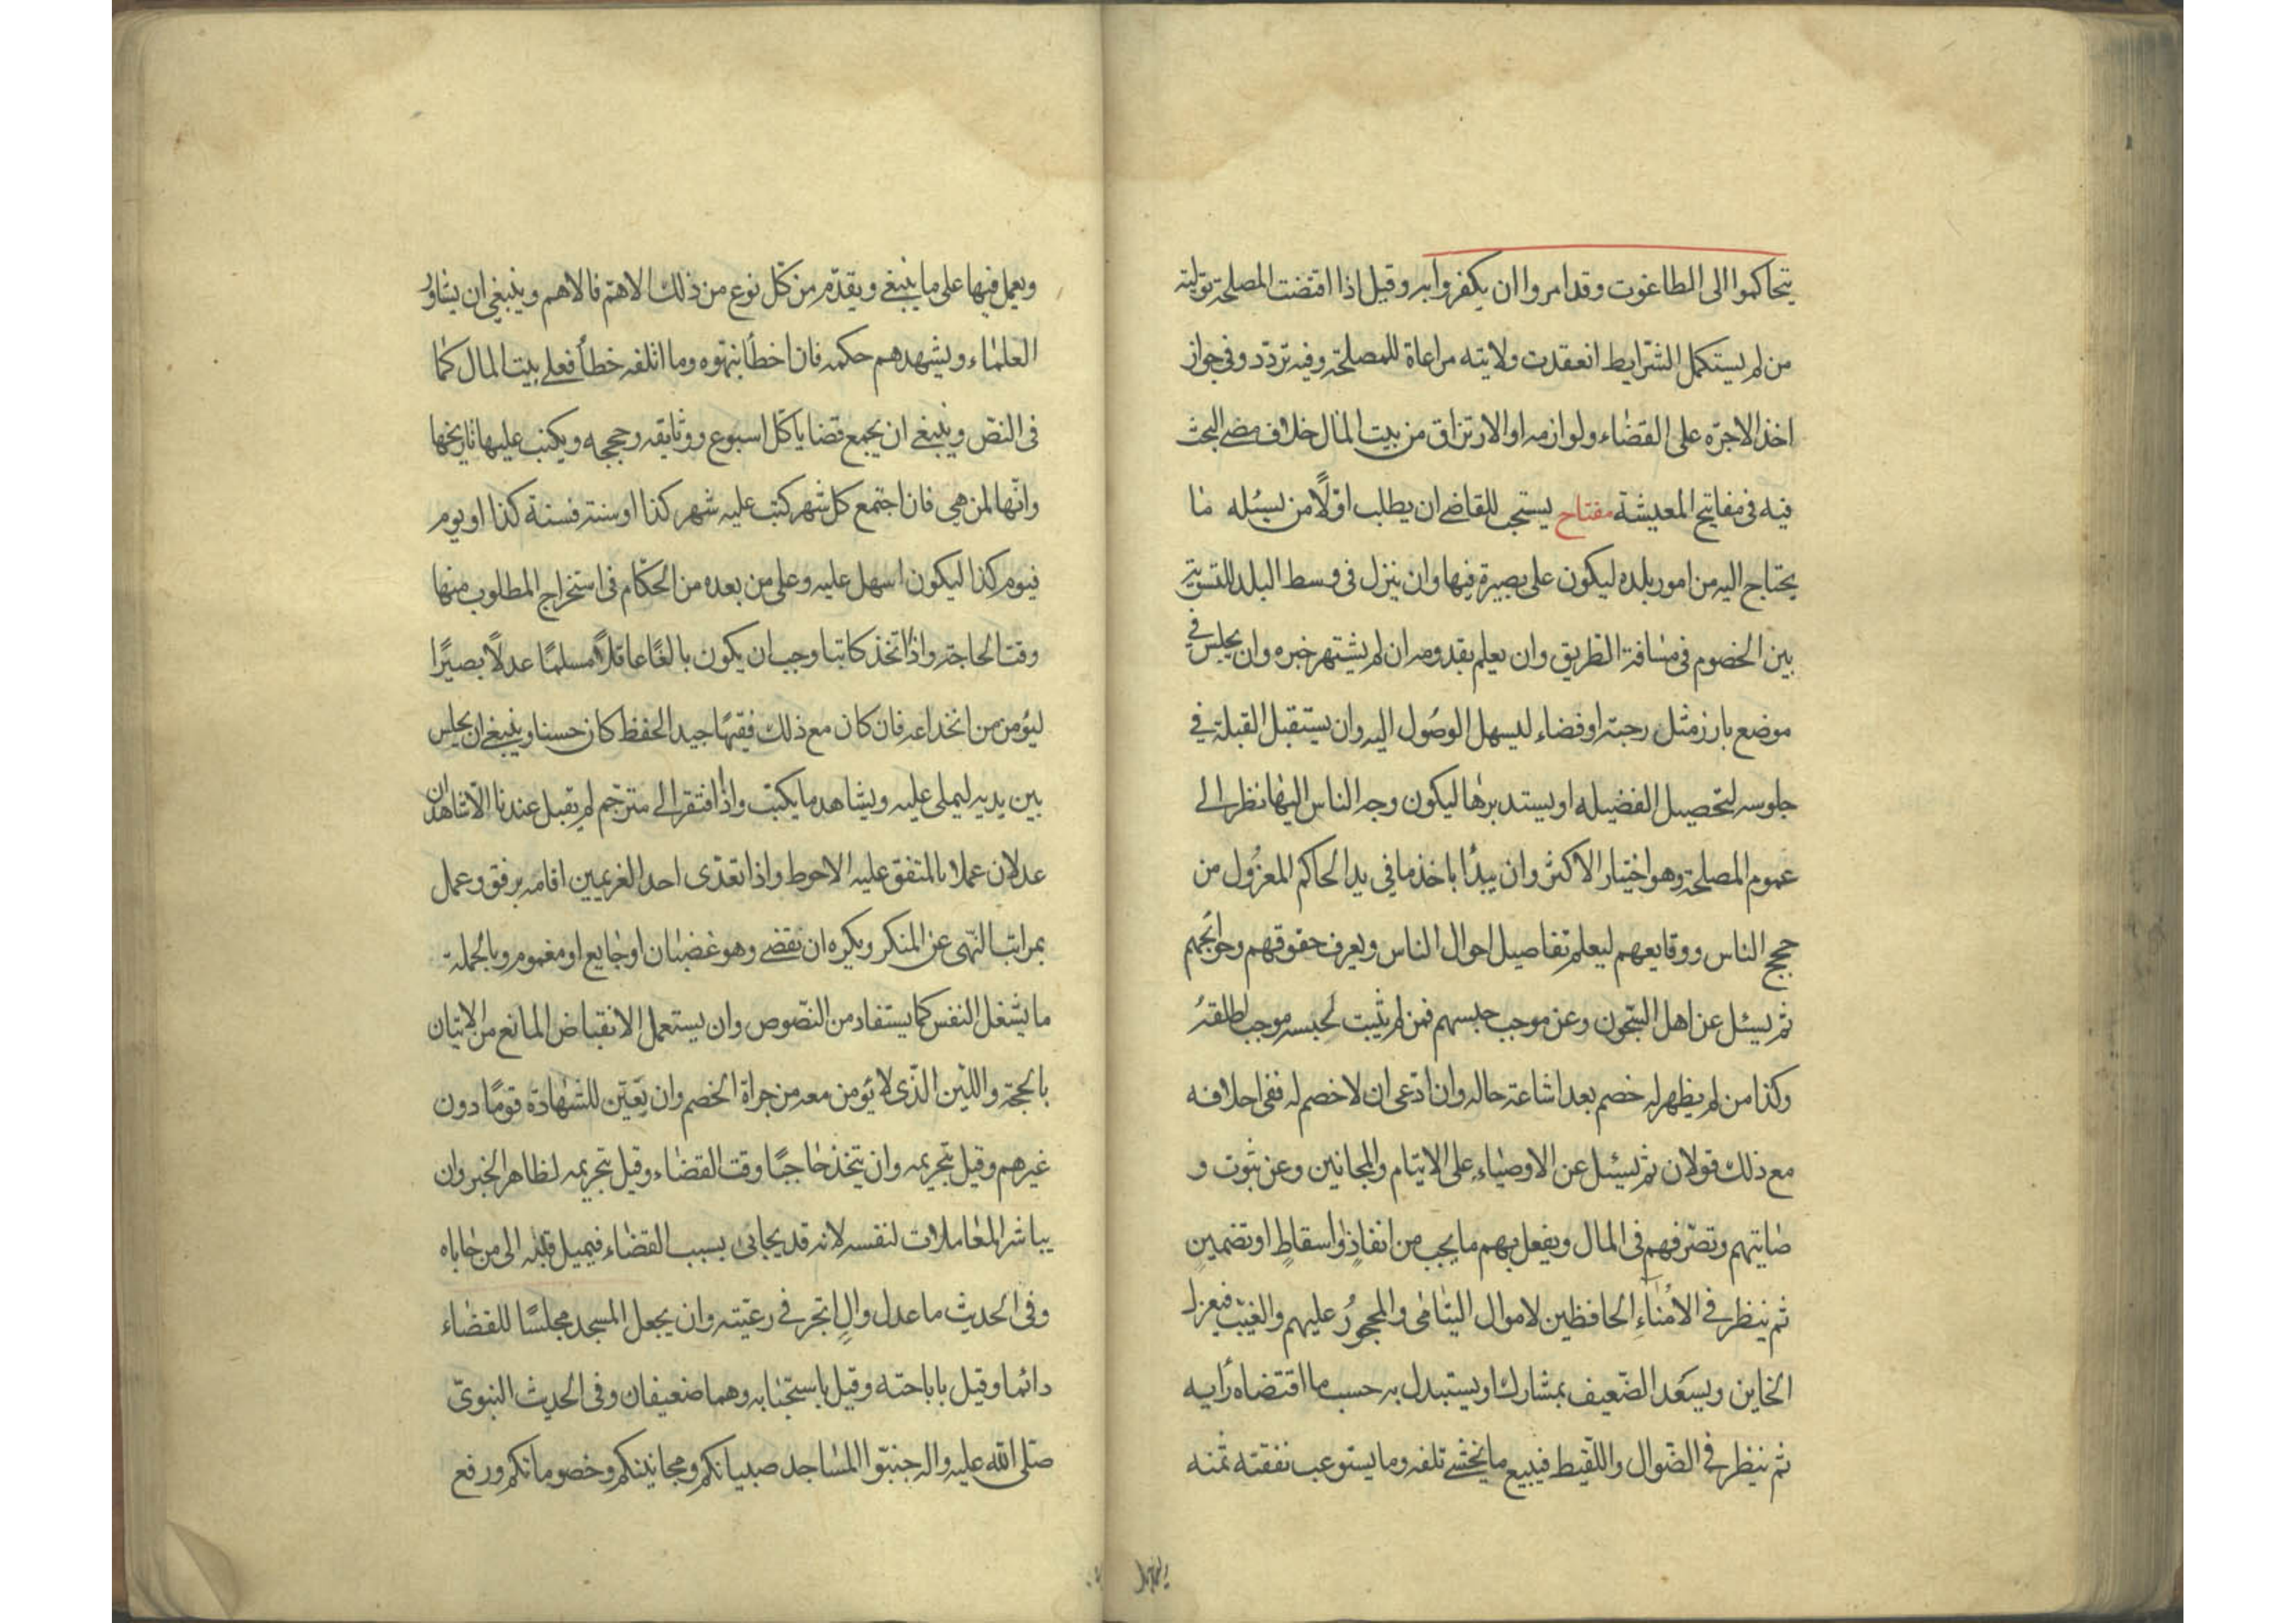 يتحاكموا الى الطاغوت وقد امروا ان يكفروا به وقيل اذا اقتضت المصلحة تولية
من لم يستكمل الشرايط انعقدت ولايته مراعاة للمصلحة وفيه تردد وفي جواز
اخذ الاجره على القضاء ولوازمه او الارتزاق من بيت المال خلاف مضى البحث
فيه فى مفاتيح المعيشة مفتاح يستحب للقاضى ان يطلب اوّلًا من يسئله ما
يحتاج اليه من امور بلده ليكون على بصيرة فيها وان ينزل فى وسط البلد للتسوية
بين الخصوم فى مسافة الطريق وان يعلم بقدومه ان لم يشتهر خبره وان يجلس في
موضع بارز مثل رحبة او فضاء ليسهل الوصول اليه وان يستقبل القبلة في
جلوسه لتحصيل الفضيله او يستدبرها ليكون وجه الناس اليها نظرا الى
عموم المصلحة وهو اختيار الاكثر وان يبدأ باخذ ما في يد الحاكم المعزول من
حجج الناس ووقايعهم ليعلم تفاصيل احوال الناس ويعرف حقوقهم وحوائجهم
ثم يسئل عن اهل السجون وعن موجب حبسهم فمن لم يثبت لحبسه موجب اطلقه
وكذا من لم يظهر له خصم بعد اشاعة حاله وان ادعى ان لا خصم له ففى احلافه
مع ذلك قولان ثم يسئل عن الاوصياء على الايتام والمجانين وعن ثبوت و
صايتهم وتصرفهم فى المال ويفعل بهم ما يجب من انفاذٍ واسقاطٍ او تضمينٍ
ثم ينظر في الامناء الحافظين لاموال اليتامى والمحجور عليهم والغيب فيعزل
الخاين ويسعد الضعيف بمشارك او يستبدل به حسب ما اقتضاه رأيه
ثم ينظر في الضوال واللقيط فيبيع ما يخشى تلفه وما يستوعب نفقته ثمنه
ويعمل فيها على ما ينبغى ويقدّم من كل نوع من ذلك الاهم فالاهم وينبغى ان يشاور
العلماء ويشهدهم حكمه فان اخطأ نبهوه وما اتلفه خطأ فعلى بيت المال كما
فى النص وينبغى ان يجمع قضايا كل اسبوع ووثايقه وحججه ويكتب عليها تاريخها
وانها لمن هى فان اجتمع كل شهر كتب عليه شهر كذا او سنة فسنة كذا او يوم
فيوم كذا ليكون اسهل عليه وعلى من بعده من الحكام فى استخراج المطلوب منها
وقت الحاجة واذا اتخذ كاتبا وجب ان يكون بالغًا عاقلًا مسلمًا عدلًا بصيرًا
ليؤمن من انخداعه فان كان مع ذلك فقيهًا جيد الحفظ كان حسنا وينبغى ان يجلس
بين يديه ليملى عليه ويشاهد ما يكتب واذا افتقر الى مترجم لم يقبل عندنا الّا شاهدان
عدلان عملا بالمتفق عليه الاحوط واذا تعدّى احد الغريمين اقامه برفق وعمل
بمراتب النهى عن المنكر ويكره ان يقضى وهو غضبان او جايع او مغموم وبالجملة
ما يشغل النفس كما يستفاد من النصوص وان يستعمل الانقباض المانع من الاتيان
بالحجة واللين الذى لا يؤمن معه من جراة الخصم وان يعين للشهادة قومًا دون
غيرهم وقيل بتحريمه وان يتخذ حاجبًا وقت القضاء وقيل بتحريمه لظاهر الخبر وان
يباشر المعاملات لنفسه لانه قد يحابى بسبب القضاء فيميل قلبه الى من حاباه
وفى الحديث ما عدل والٍ اتجر في رعيته وان يجعل المسجد مجلسًا للقضاء
دائما وقيل باباحته وقيل باستحبابه وهما ضعيفان وفى الحديث النبوىّ
صلى الله عليه واله جنبوا المساجد صبيانكم ومجانينكم وخصوماتكم ورفع